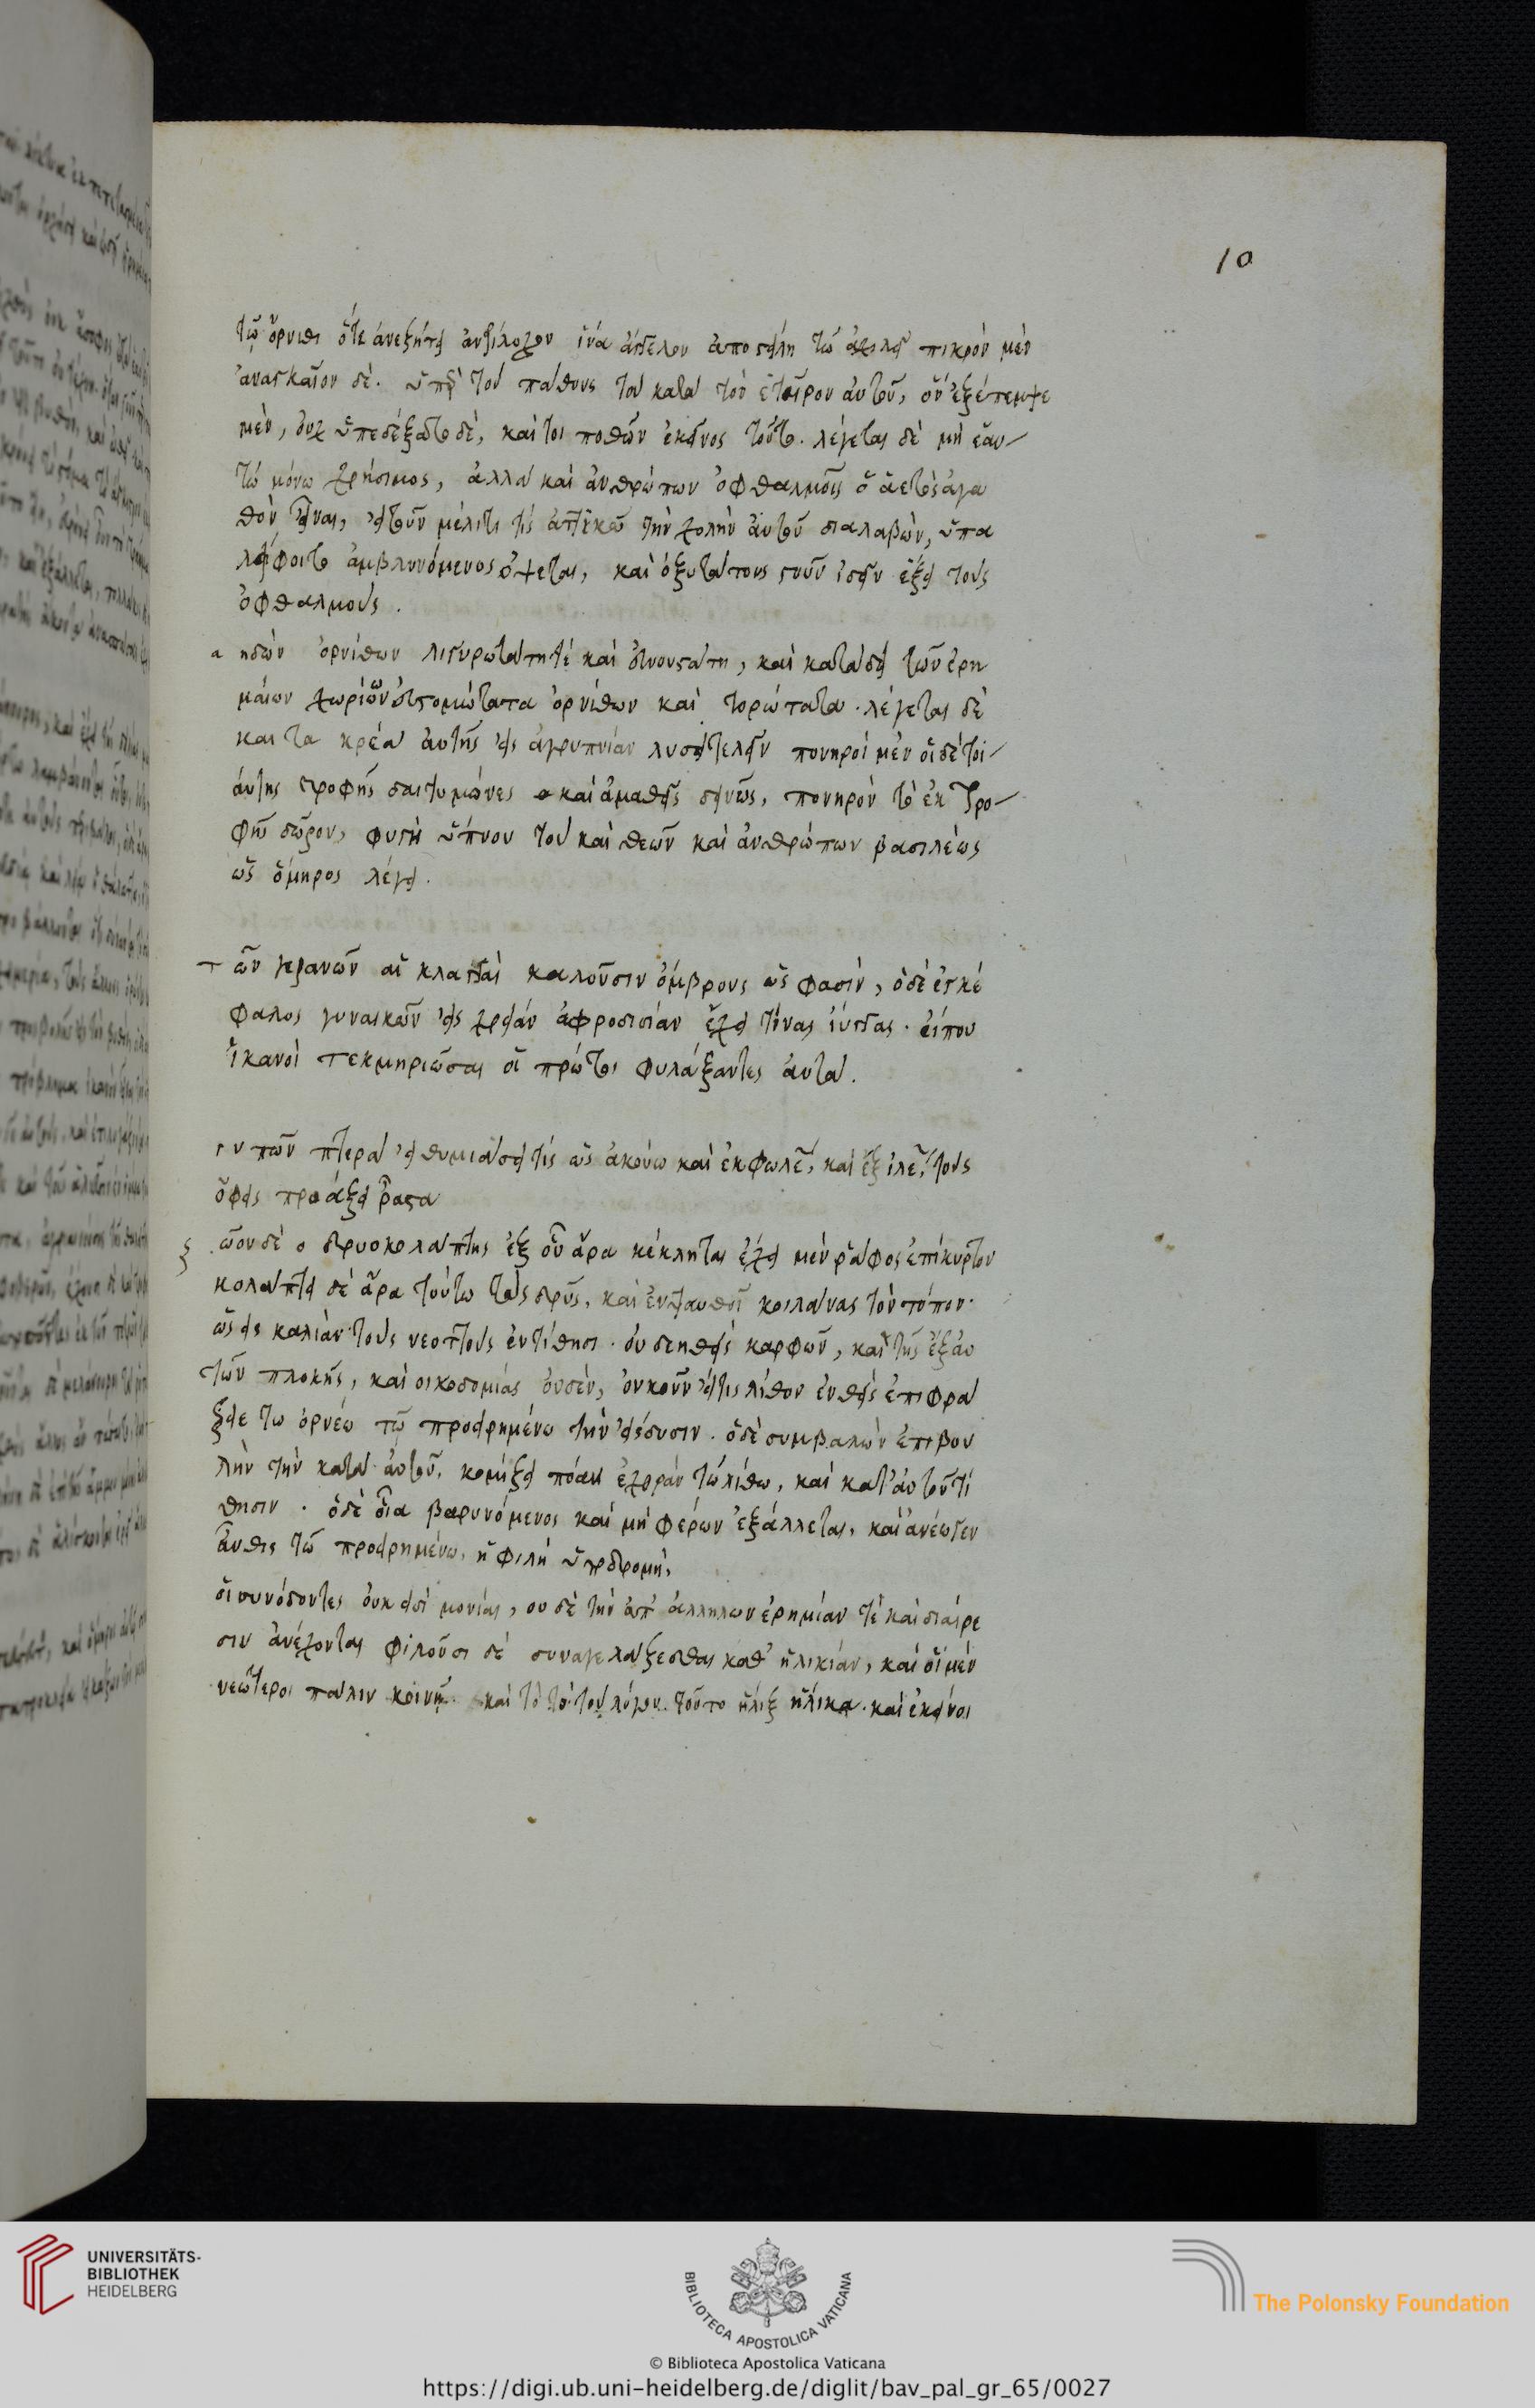 10
τῷ ὄρνιθι ὅτε ἀνεζήτει ἀντίλοχον ἵνα ἄγγελον ἀποστείλη τῶ ἀχιλεῖ πικρὸν μὲν
ἀναγκαῖον δὲ. ὑπὲρ τοῦ πάθους τοῦ κατὰ τὸν ἑταῖρον αὐτοῦ, ὃν ἐξέπεμψε
μὲν, οὐχ ὑπεδέξατο δὲ, καί τοι ποθῶν ἐκεῖνος τοῦτο. λέγεται δὲ μὴ ἑαυ
τῶ μόνω χρήσιμος, ἀλλὰ καὶ ἀνθρώπων ὀφθαλμοῖς ὁ ἀετὸς ἀγα
θὸν εἶναι, εἰ γοῦν μέλιτι τίς ἀττικῶ τὴν χολὴν αὐτοῦ διαλαβὼν, ὑπα
λείφοιτο ἀμβλυνόμενος ὄψεται, καὶ ὀξυτάτους γοῦν ἰδεῖν ἕξει τοὺς
ὀφθαλμούς.
αηδὼν ὀρνίθων λιγυρωτάτη τὲ καὶ εὐμουσοτάτη, καὶ κατάδει τῶν ἐρη
μαίων χωρίων εὐστομώτατα ὀρνίθων καὶ τορώτατα. λέγεται δὲ
και τα κρέα αὐτῆς εἰς ἀγρυπνίαν λυσιτελεῖν πονηροὶ μὲν οἱ δὲ τοι
αύτης τροφῆς δαιτυμόνες καὶ ἀμαθεῖς δεινῶς, πονηρὸν τὸ ἐκ τρο
φῆς δῶρον, φυγὴ ὕπνου τοῦ καὶ θεῶν καὶ ἀνθρώπων βασιλέως
ὡς ὅμηρος λέγει.
των γεράνων αἱ κλαγγαὶ καλοῦσιν ὄμβρους ὥς φασιν, ὁ δὲ ἐγκέ
φαλος γυναικῶν εἰς χρείαν ἀφροδισίαν ἔχει τινας ἰύγγας. εἴπου
ἱκανοὶ τεκμηριῶσαι οἱ πρῶτοι φυλάξαντες αὐτά.
γυπῶν πτερὰ εἰ θυμιάσει τὶς ὡς ἀκούω καὶ ἐκ φωλεῶν, καὶ ἐξ ἰλεῶν τοὺς
ὄφεις προάξει ῥᾷστα
ζῶον δὲ ὁ δρυοκολάπτης ἐξ οὗ ἄρα κέκληται ἔχει μὲν ῥάμφος ἐπίκυρτον
κολάπτει δὲ ἄρα τούτω τὰς δρῦς, καὶ ἐνταυθοῖ κοιλάνας τὸν τόπον
ὡς εἰς καλιὰν τοὺς νεοττοὺς ἐντίθησι. οὐ δεηθεὶς καρφῶν, καὶ τῆς ἐξ αὐ
τῶν πλοκῆς, καὶ οἰκοδομίας οὐδὲν, οὐκοῦν εἴ τις λίθον ἐνθεὶς ἐπιφρά
ξειε τω ὀρνέω τῶ προειρημένω τὴν εἴσδυσιν. ὁ δὲ συμβαλὼν ἐπιβου
λὴν τὴν κατὰ αὐτοῦ, κομίζει πόαν ἐχθρὰν τῶ λίθω, καὶ κατ' αὐτοῦ τί
θησιν. ὁ δὲ οἷα βαρυνόμενος καὶ μὴ φέρων ἐξάλλεται, καὶ ἀνέωγεν
αὖθις τῶ προειρημένω, ἡ φίλη ὑποδρομή.
οἱ συνόδοντες οὐκ εἰσὶ μονίαι, ου δὲ τὴν ἀπ' ἀλλήλων ἐρημίαν τὲ καὶ διαίρε
σιν ἀνέχονται φιλοῦσι δὲ συναγελάζεσθαι καθ' ἡλικίαν, καὶ οἱ μὲν
νεώτεροι πάλιν κοινῇ καὶ τὸ τοῦ λόγου τοῦτο ἧλιξ ἥλικα. καὶ ἐκεῖνοι
UNIVERSITÄTS-
BIBLIOTHEK
HEIDELBERG
BIBLIOTECA APOSTOLICA VATICANA
© Biblioteca Apostolica Vaticana
The Polonsky Foundation
https://digi.ub.uni-heidelberg.de/diglit/bav_pal_gr_65/0027